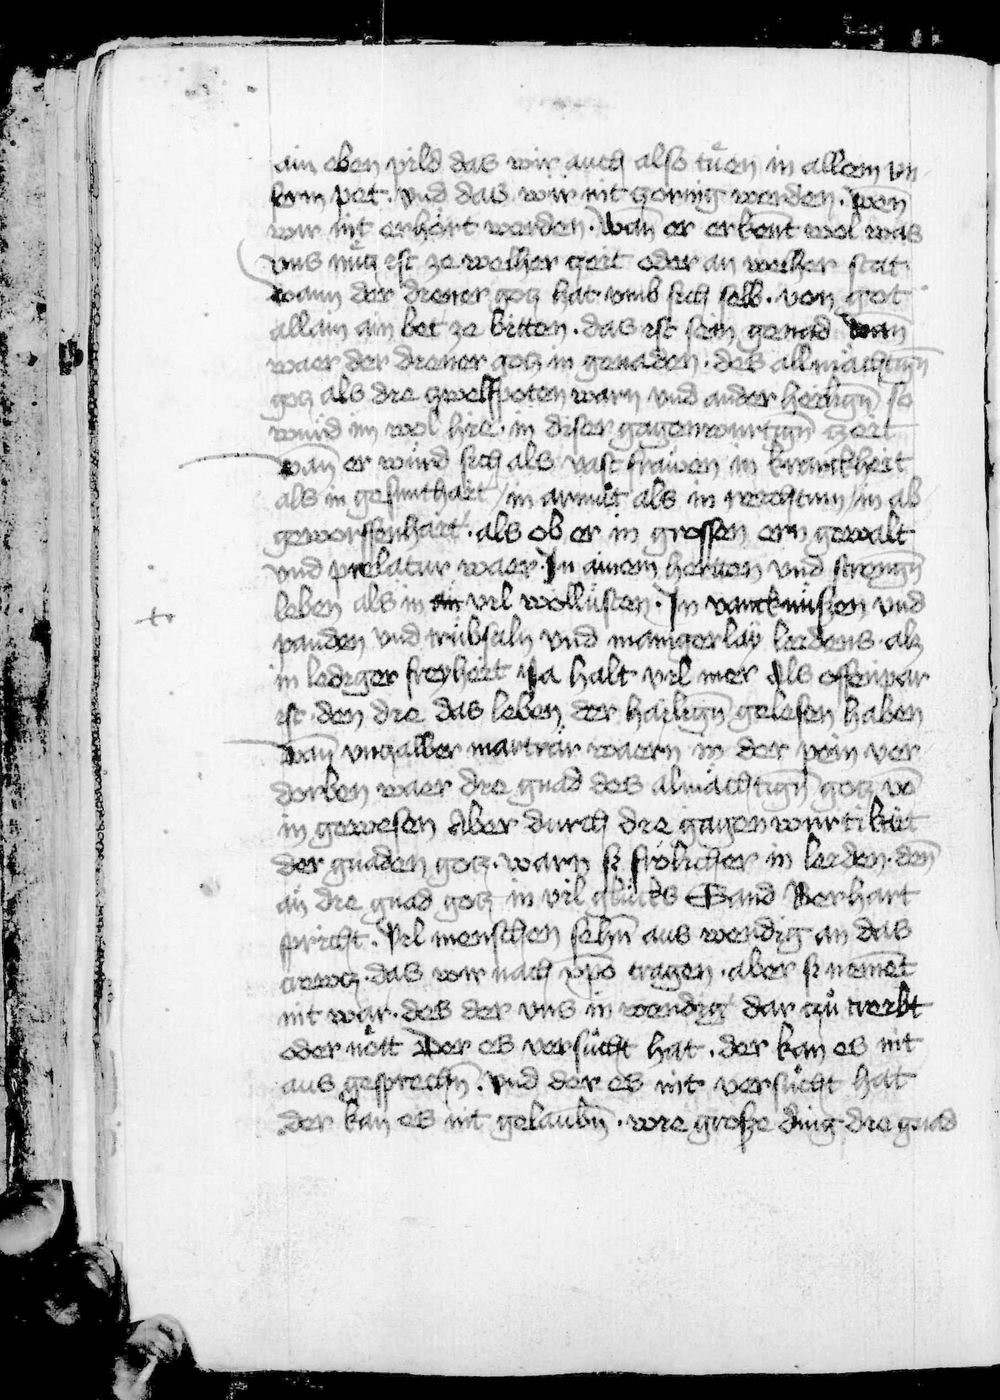 ain eben pild das wir auch also tuͤen in allem un
serm pet. Und das wir nit zornig werden. wen̄
wir nit erhört werden. Wan̄ er erkent wol was
uns nücz ist ze welher zeit oder an welher stat
wann der diener gotz hat umb sich selb. von got
allain ain bet ze bitten. das ist sein genad Wan̄
waer der diener gotz in genaden. des allmächtigñ
gotz als die zwelfpoten warn und ander heiligñ so
wuird im wol hie. in diser gagenwurtigñ czeit
wan̄ er wuird sich als vast frawen in kranckheit
als in gesunthait / in armuͤt als in reichtum / in ab
geworffenhait. als ob er in grossen ern gewalt
und prelatur waer. In ainem herten und strengñ
leben als in vil wollüsten. In vancknüssen und
panden und trübsaln und maniger lay leidens. alz
in lediger freyheit Ja halt vil mer Als offenwar
ist. den die das leben der hailigñ gelesen haben
Wan̄ unczalber marträr waern in der pein ver
dorben waer die gnad des almächtigñ gotz nit
in gewesen Aber durch die gagenwurtikeit
der gnaden gotz. warn si frölicher in leiden. den̄
an die gnad gotz in vil glücks Sand Bernhart
spricht. Vil menschen sehn̄ aus wendig an das
crewtz. das wir nach xp̄o tragen. aber si nement
nit war. des der uns in wendig dar zuͤ treibt
oder nött Der es versuͤcht hat. der kan es nit
aus gesprechñ. Und der es nit versuͤcht hat
der kan es nit gelaubñ. wie große ding die gnad